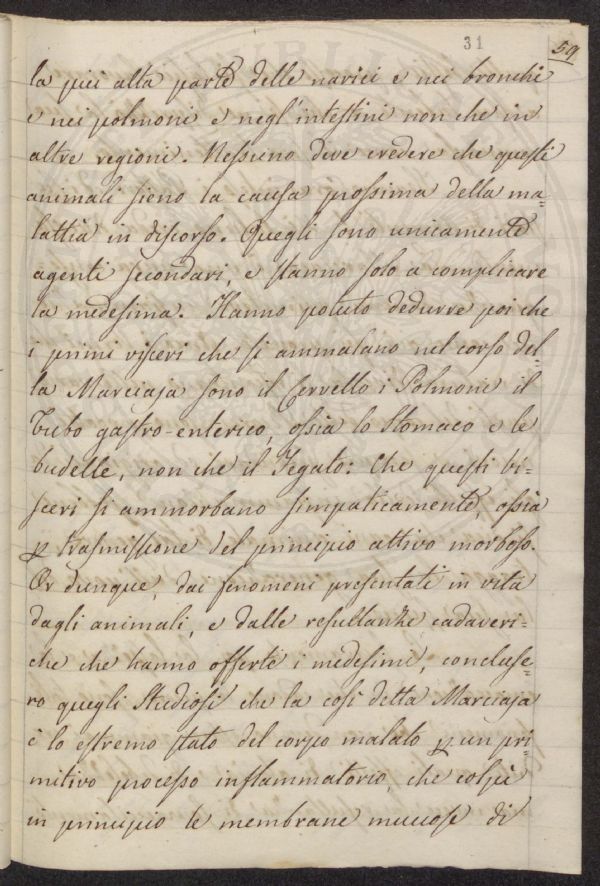 31
59
la più alta parte delle narici e nei bronchi
e nei polmoni e negl'intestini non che in
altre regioni. Nessuno deve credere che questi
animali sieno la causa prossima della ma=
lattia in discorso. Quegli sono unicamente
agenti secondari, e stanno solo a complicare
la medesima. Hanno potuto dedurre poi che
i primi visceri che si ammalano nel corso del=
la Marciaja sono il Cervello i Polmoni il
Tubo gastro-enterico, ossia lo Stomaco e le
budelle, non che il Fegato: Che questi vi=
sceri si ammorbano simpaticamente, ossia
p trasmissione del principio attivo morboso.
Or dunque, dai fenomeni presentati in vita
dagli animali, e dalle resultanze cadaveri=
che che hanno offerte i medesimi, conclude=
ro quegli Studiosi che la così detta Marciaja
è lo estremo stato del corpo malato p un pri=
mitivo processo inflammatorio, che colpì
in principio le membrane muccose di